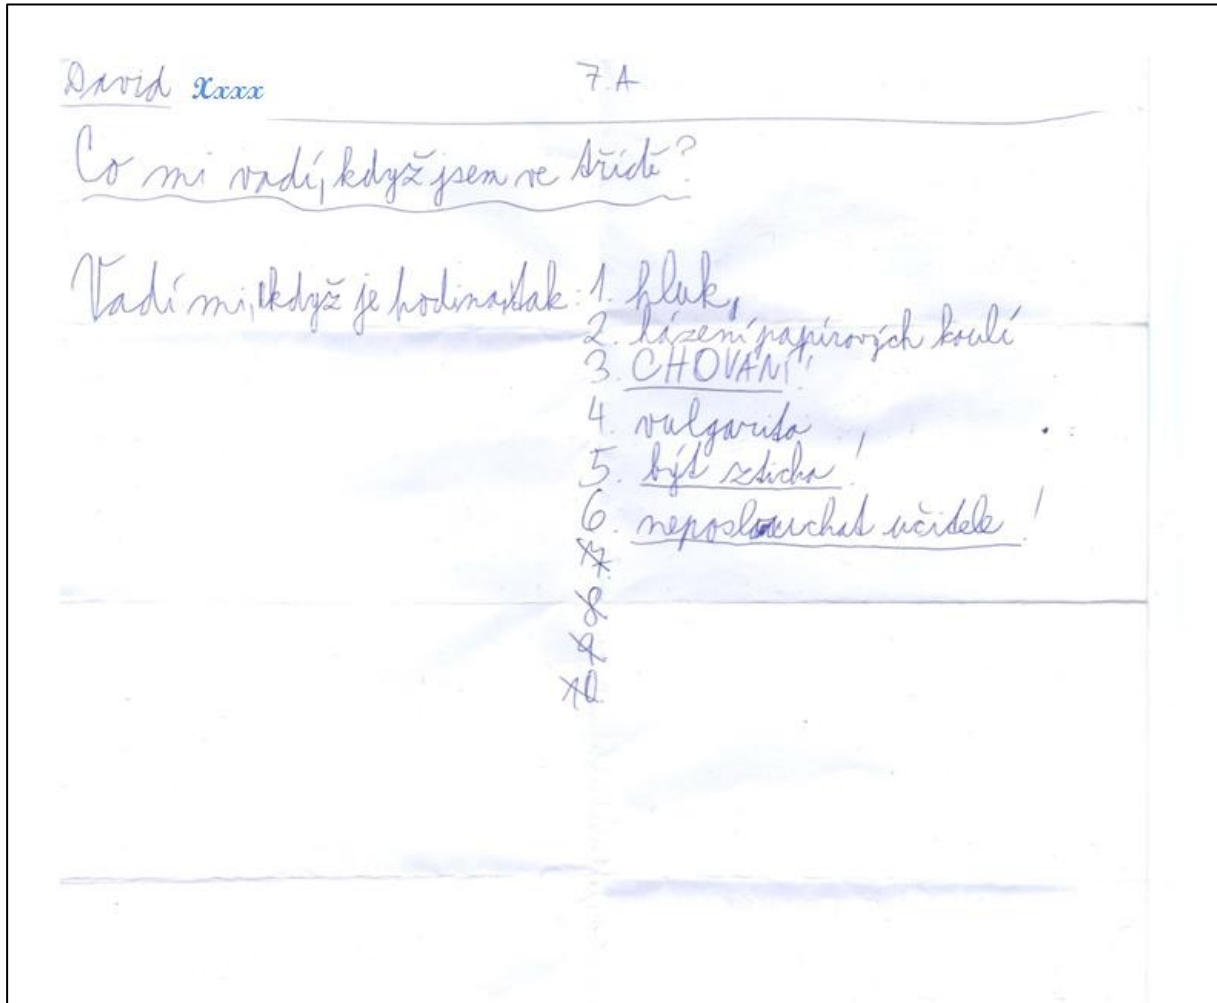 David Xxxx 7.A
Co mi vadí, když jsem ve třídě?
Vadí mi, když je hodina tak: 1. hluk,
2. házení papírových koulí
3. CHOVÁNÍ!
4. vulgarita
5. být zticha!
6. neposlouchat učitele!
7.
8
9
10.